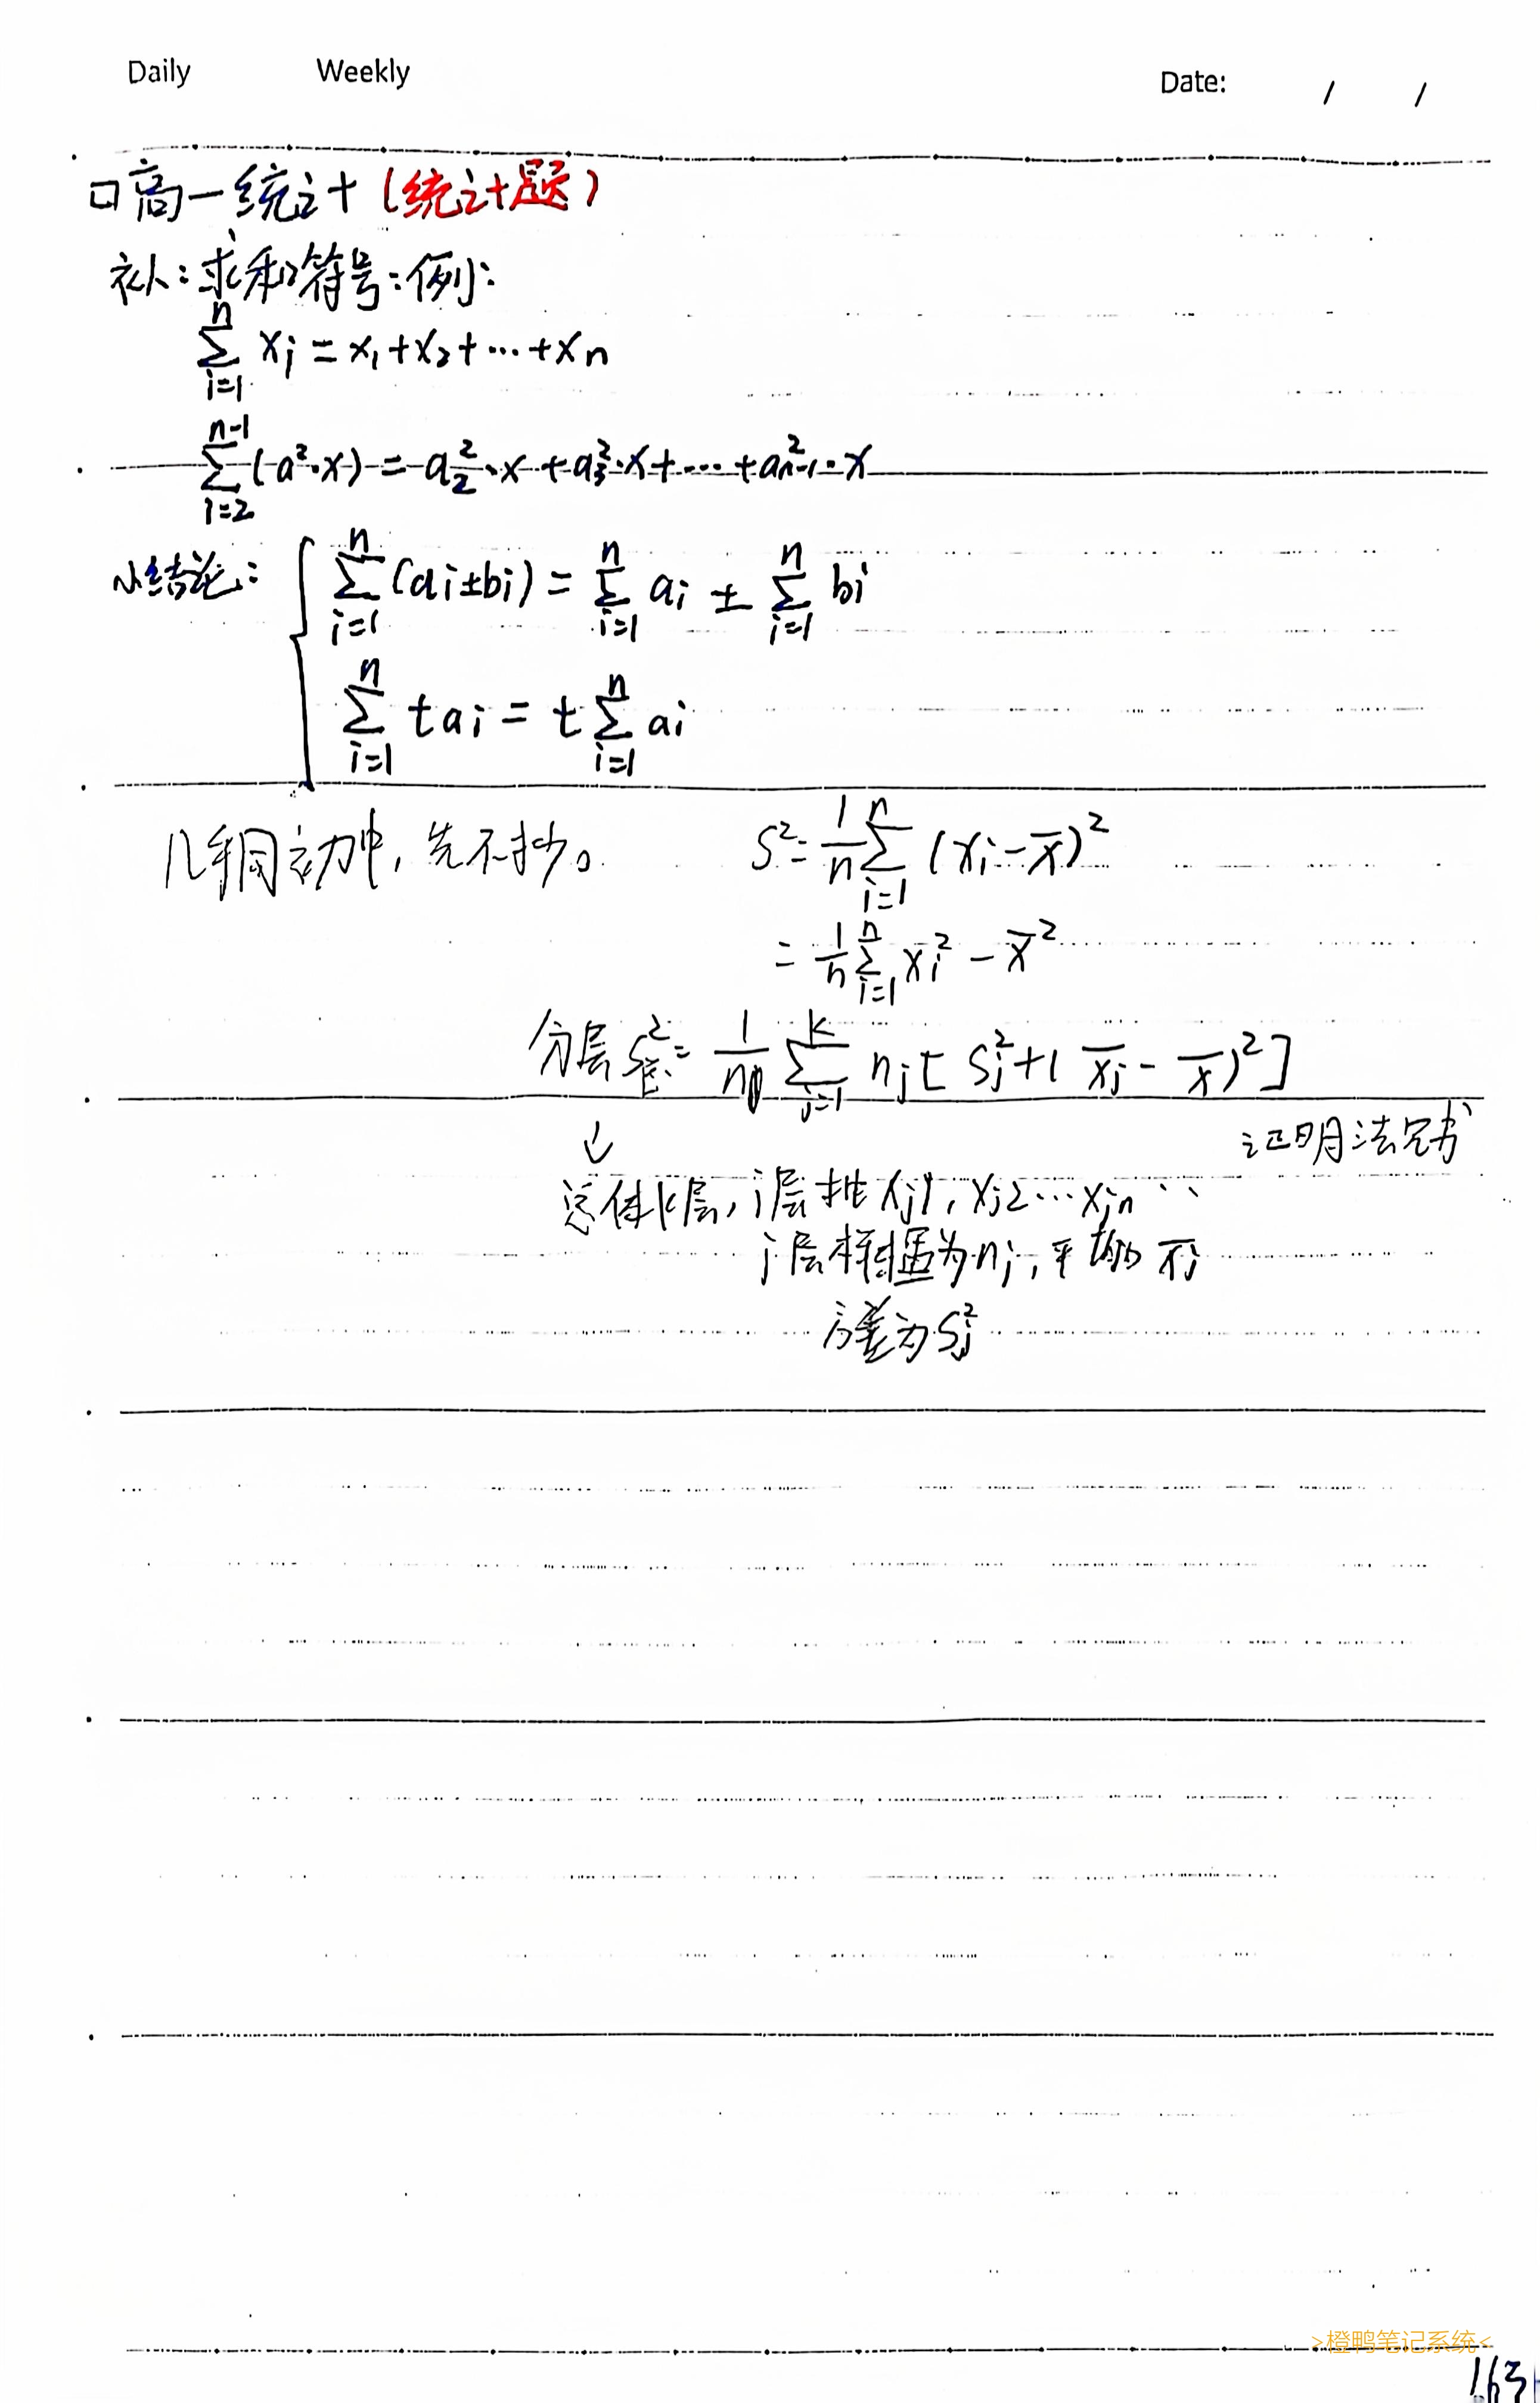 Daily Weekly Date: / /
口高一统计(统计题)
补:求和符号:例:
n∑i=1 xi = x₁+x₂+…+xn
n-1∑i=2 (a²·x) = a₂²·x+a₃²·x+…+aₙ₋₁²·x
小结论:
n∑i=1 (ai±bi) = n∑i=1 ai ± n∑i=1 bi
n∑i=1 tai = t n∑i=1 ai
先不抄。
S² = 1/n n∑i=1 (xi-x̄)²
= 1/n n∑i=1 xi² - x̄²
分层 S总² = 1/n k∑j=1 nj[Sj²+(x̄j-x̄)²]
证明法见书
↓
总体k层,j层抽xj1,xj2…xjn
j层样本量为nj,平均x̄j
方差为Sj²
>橙鸭笔记系统<
163